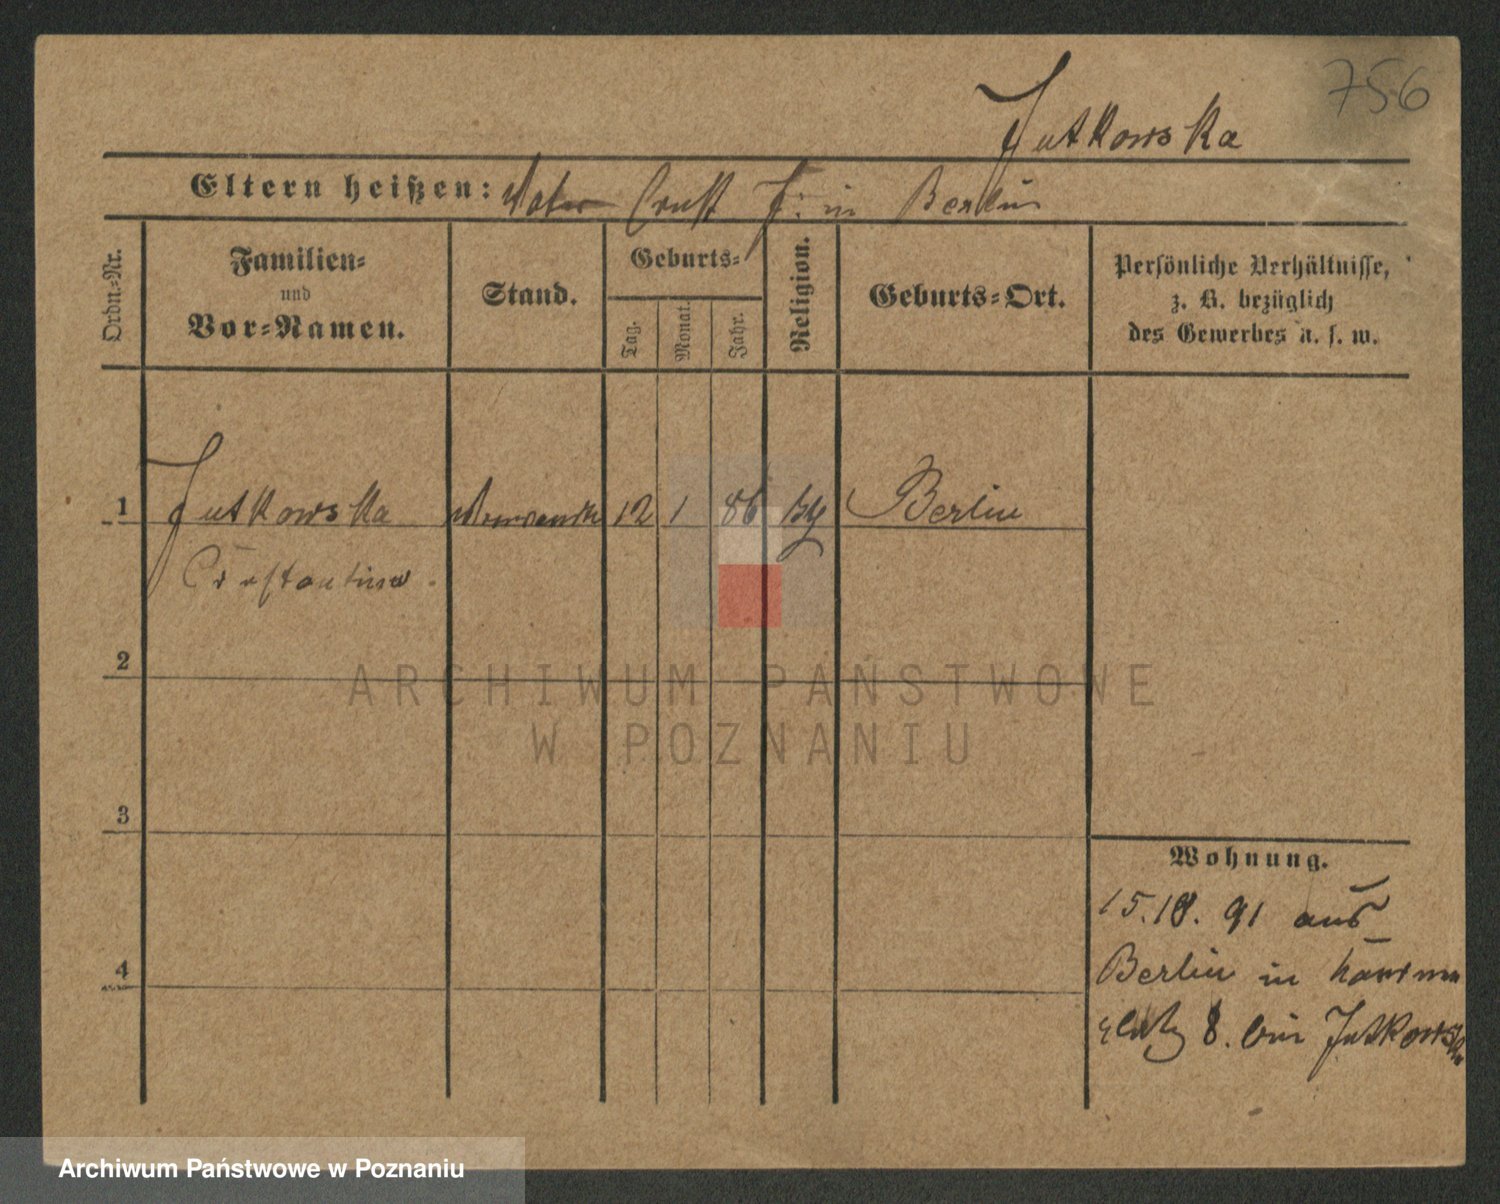 756
Jutkowska
Eltern heißen: Vater Ernst J: in Berlin
Ordn.-Nr.
Familien-
und
Vor-Namen.
Stand.
Geburts-
Tag.
Monat.
Jahr.
Religion.
Geburts-Ort.
Persönliche Verhältnisse,
z. B. bezüglich
des Gewerbes u. s. w.
1 Jutkowska 12 1 86 Berlin
2
3
4
Wohnung.
15.10.91 aus
Berlin in
platz 8. bei Jutkowska
ARCHIWUM PAŃSTWOWE
W POZNANIU
Archiwum Państwowe w Poznaniu